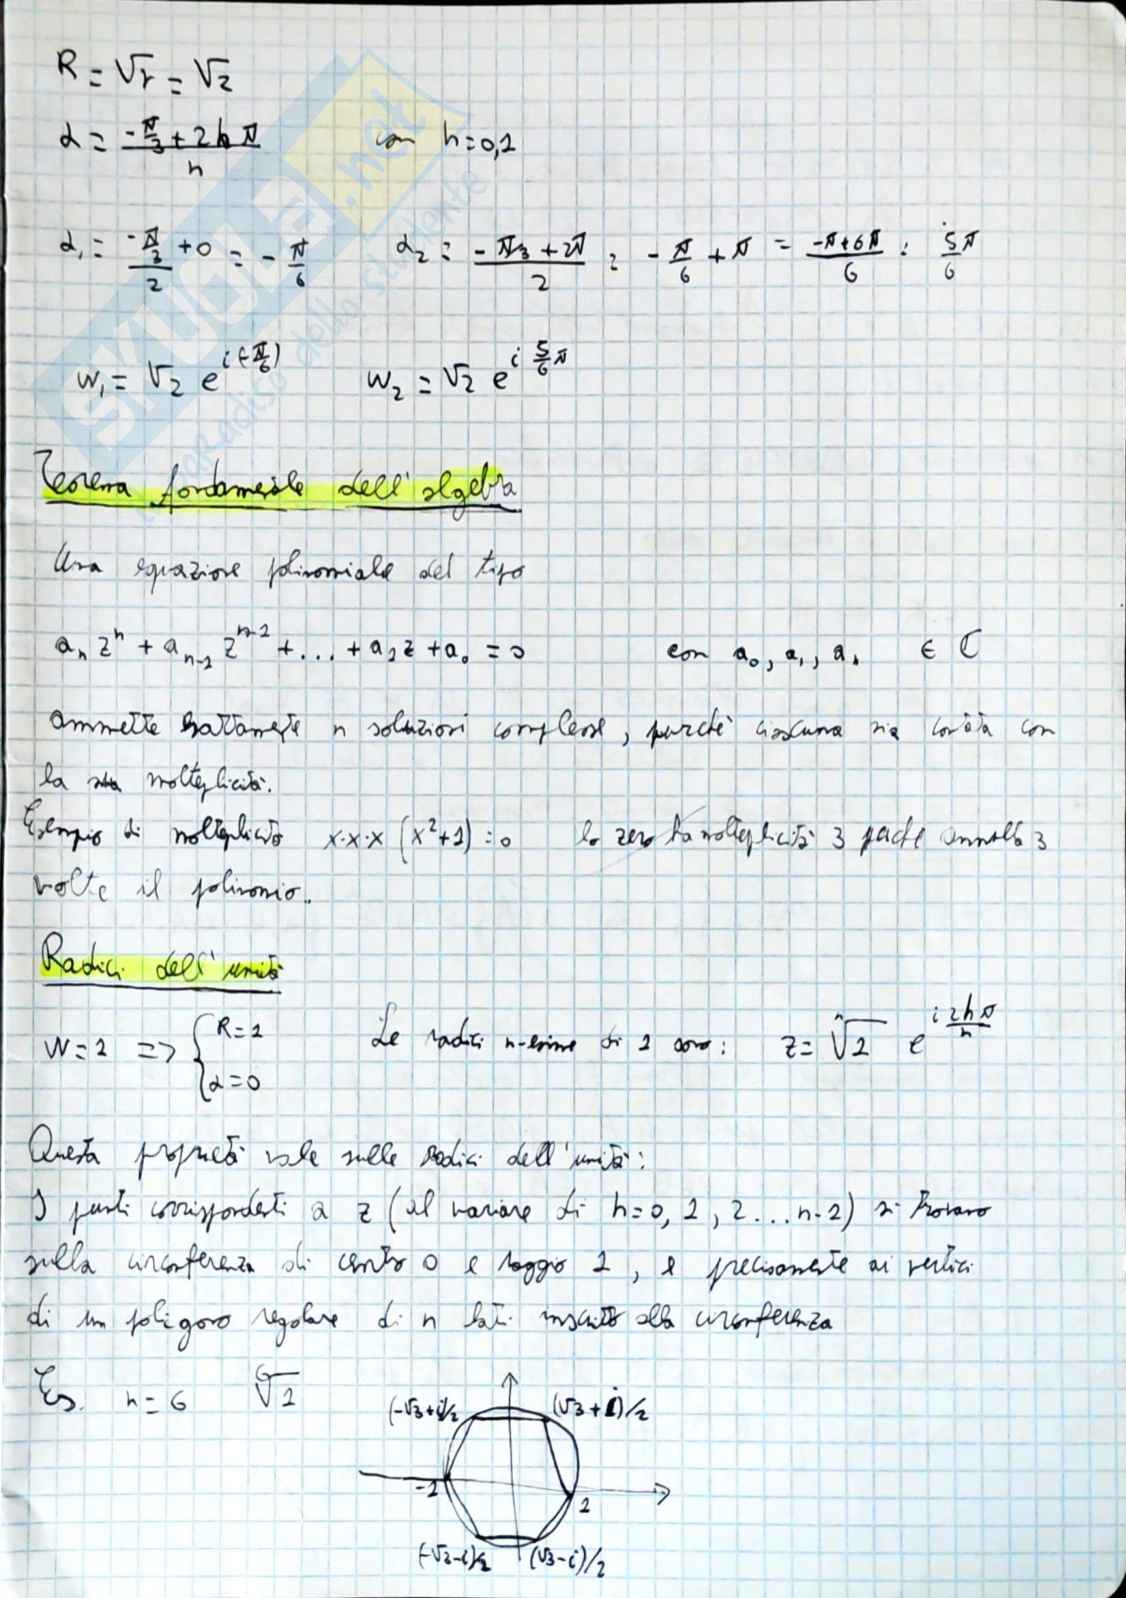 R = √r = √2
α = (-π/3 + 2hπ)/n con h=0,1
α₁ = (-π/3 + 0)/2 = -π/6 α₂ = (-π/3 + 2π)/2 = -π/6 + π = (-π+6π)/6 = 5π/6
w₁ = √2 e^{i(-π/6)} w₂ = √2 e^{i 5/6 π}
Teorema fondamentale dell'algebra
Una equazione polinomiale del tipo
aₙ zⁿ + aₙ₋₁ zⁿ⁻¹ + ... + a₁z + a₀ = 0 con a₀, a₁, a, ∈ ℂ
ammette esattamente n soluzioni complesse, purché ciascuna sia contata con
la molteplicità.
Esempio di molteplicità x·x·x (x²+1)=0 lo zero ha molteplicità 3 perché annulla 3
volte il polinomio.
Radici dell'unità
W=1 => { R=1
α=0 Le radici n-esime di 1 sono: z= ⁿ√1 e^{i 2hπ/n}
Questa proprietà vale sulle radici dell'unità:
I punti corrispondenti a z (al variare di h=0, 1, 2...n-1) si trovano
sulla circonferenza di centro 0 e raggio 1, e precisamente ai vertici
di un poligono regolare di n lati inscritto alla circonferenza
Es. n=6 ⁶√1
(-√3+i)/2 (√3+i)/2
-1 1
(-√3-i)/2 (√3-i)/2
SKUOLA.net
il paradiso dello studente